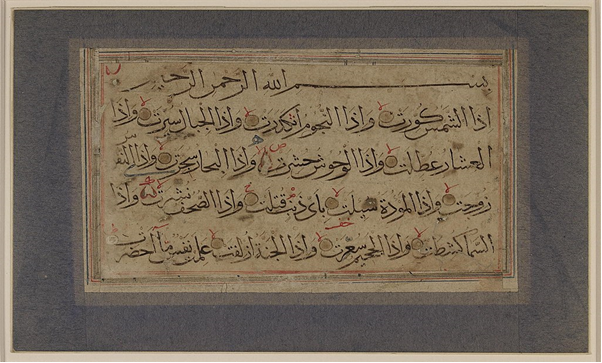 بسم الله الرحمن الرحيم
اذا الشمس كورت واذا النجوم انكدرت واذا الجبال سيرت واذا
العشار عطلت واذا الوحوش حشرت واذا البحار سجرت واذا النفو
زوجت واذا المودة سئلت باى ذنب قتلت واذا الصحف نشرت واذا
السما كشطت واذا الجحيم سعرت واذا الجنة ازلفت علمت نفس ما احضرت